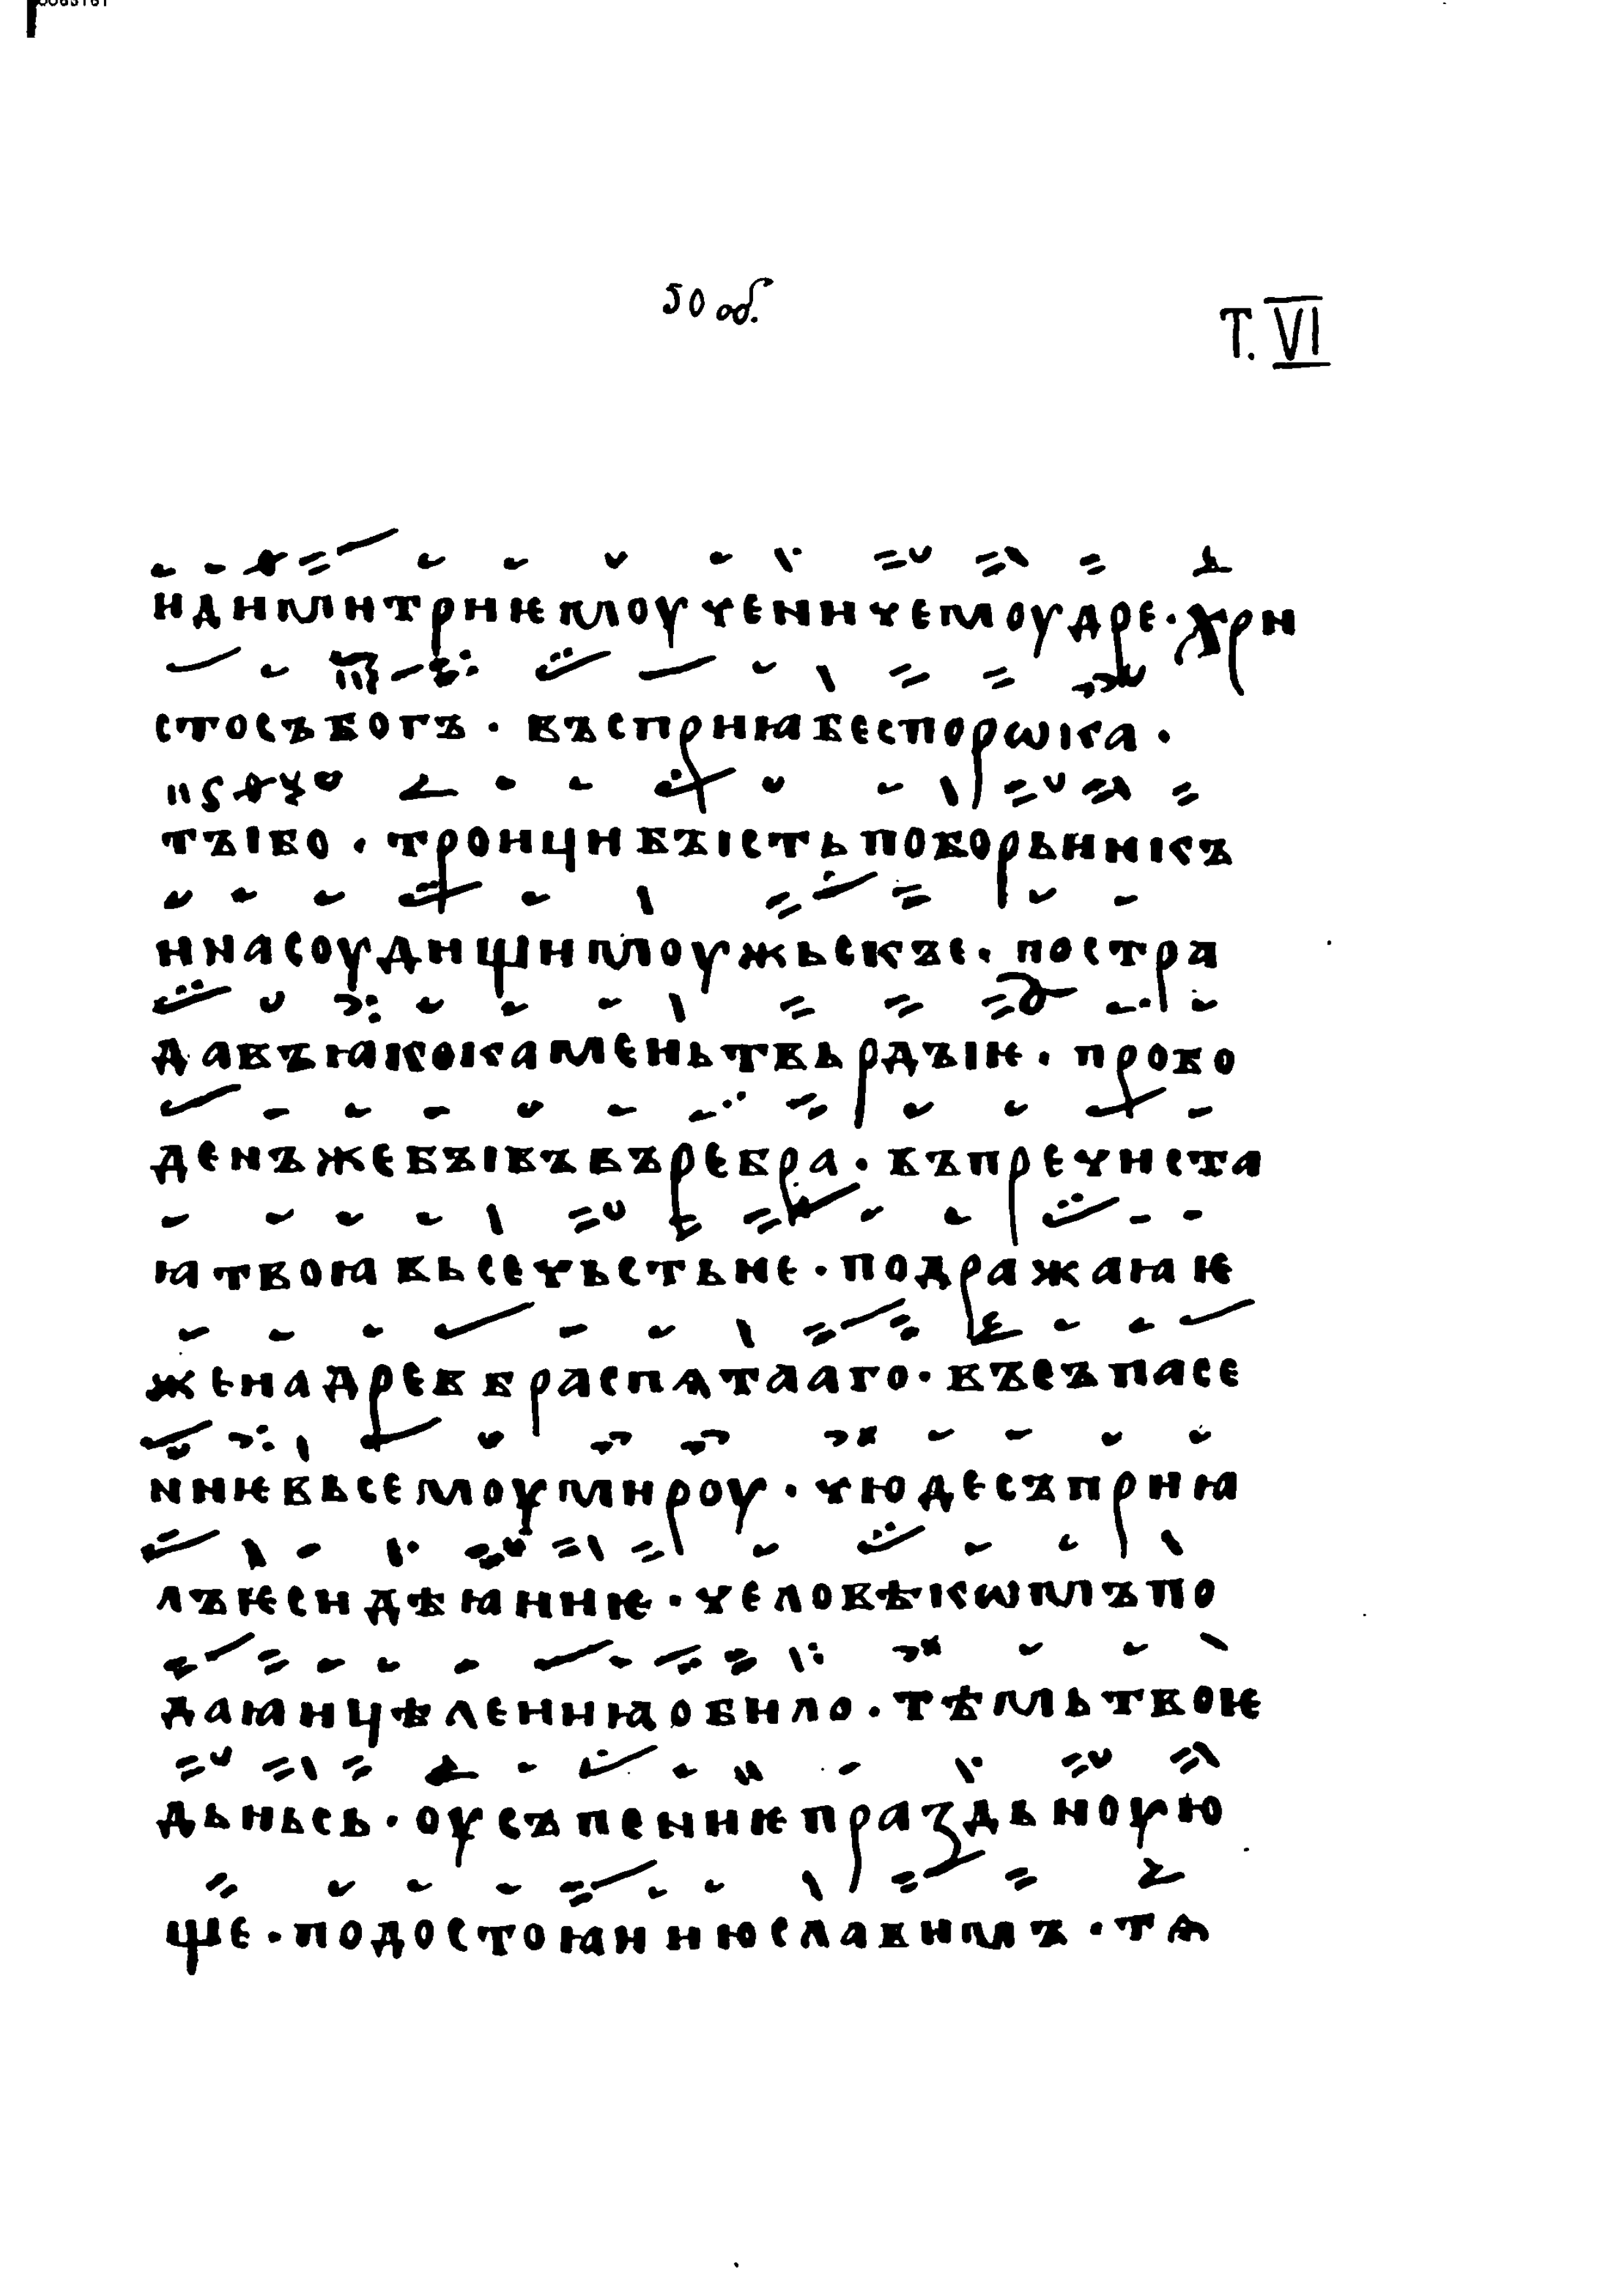 50 об.
Т. VI
идимитриѥмоученичемоудре · хри
стосъбогъ · въсприꙗбеспорѡка ·
тꙑбо · троицибꙑстьпоборьникъ
инасоудищимоужьскъе · постра
давъꙗкокаменьтвьрдꙑѥ · пробо
денъжебꙑвъвъребра · въпречиста
ꙗтвоꙗвьсечьстьне · подражаꙗѥ
женадревѣраспѧтааго · въсъпасе
ниѥвьсемоумироу · чюдесъприꙗ
лъѥсидѣꙗниѥ · чєловѣкѡмъпо
даꙗицѣлениꙗобило · тѣмьтвоѥ
дьньсь · оусъпениѥпраздьноую
ще · подостоꙗниюславимъ · тѧ